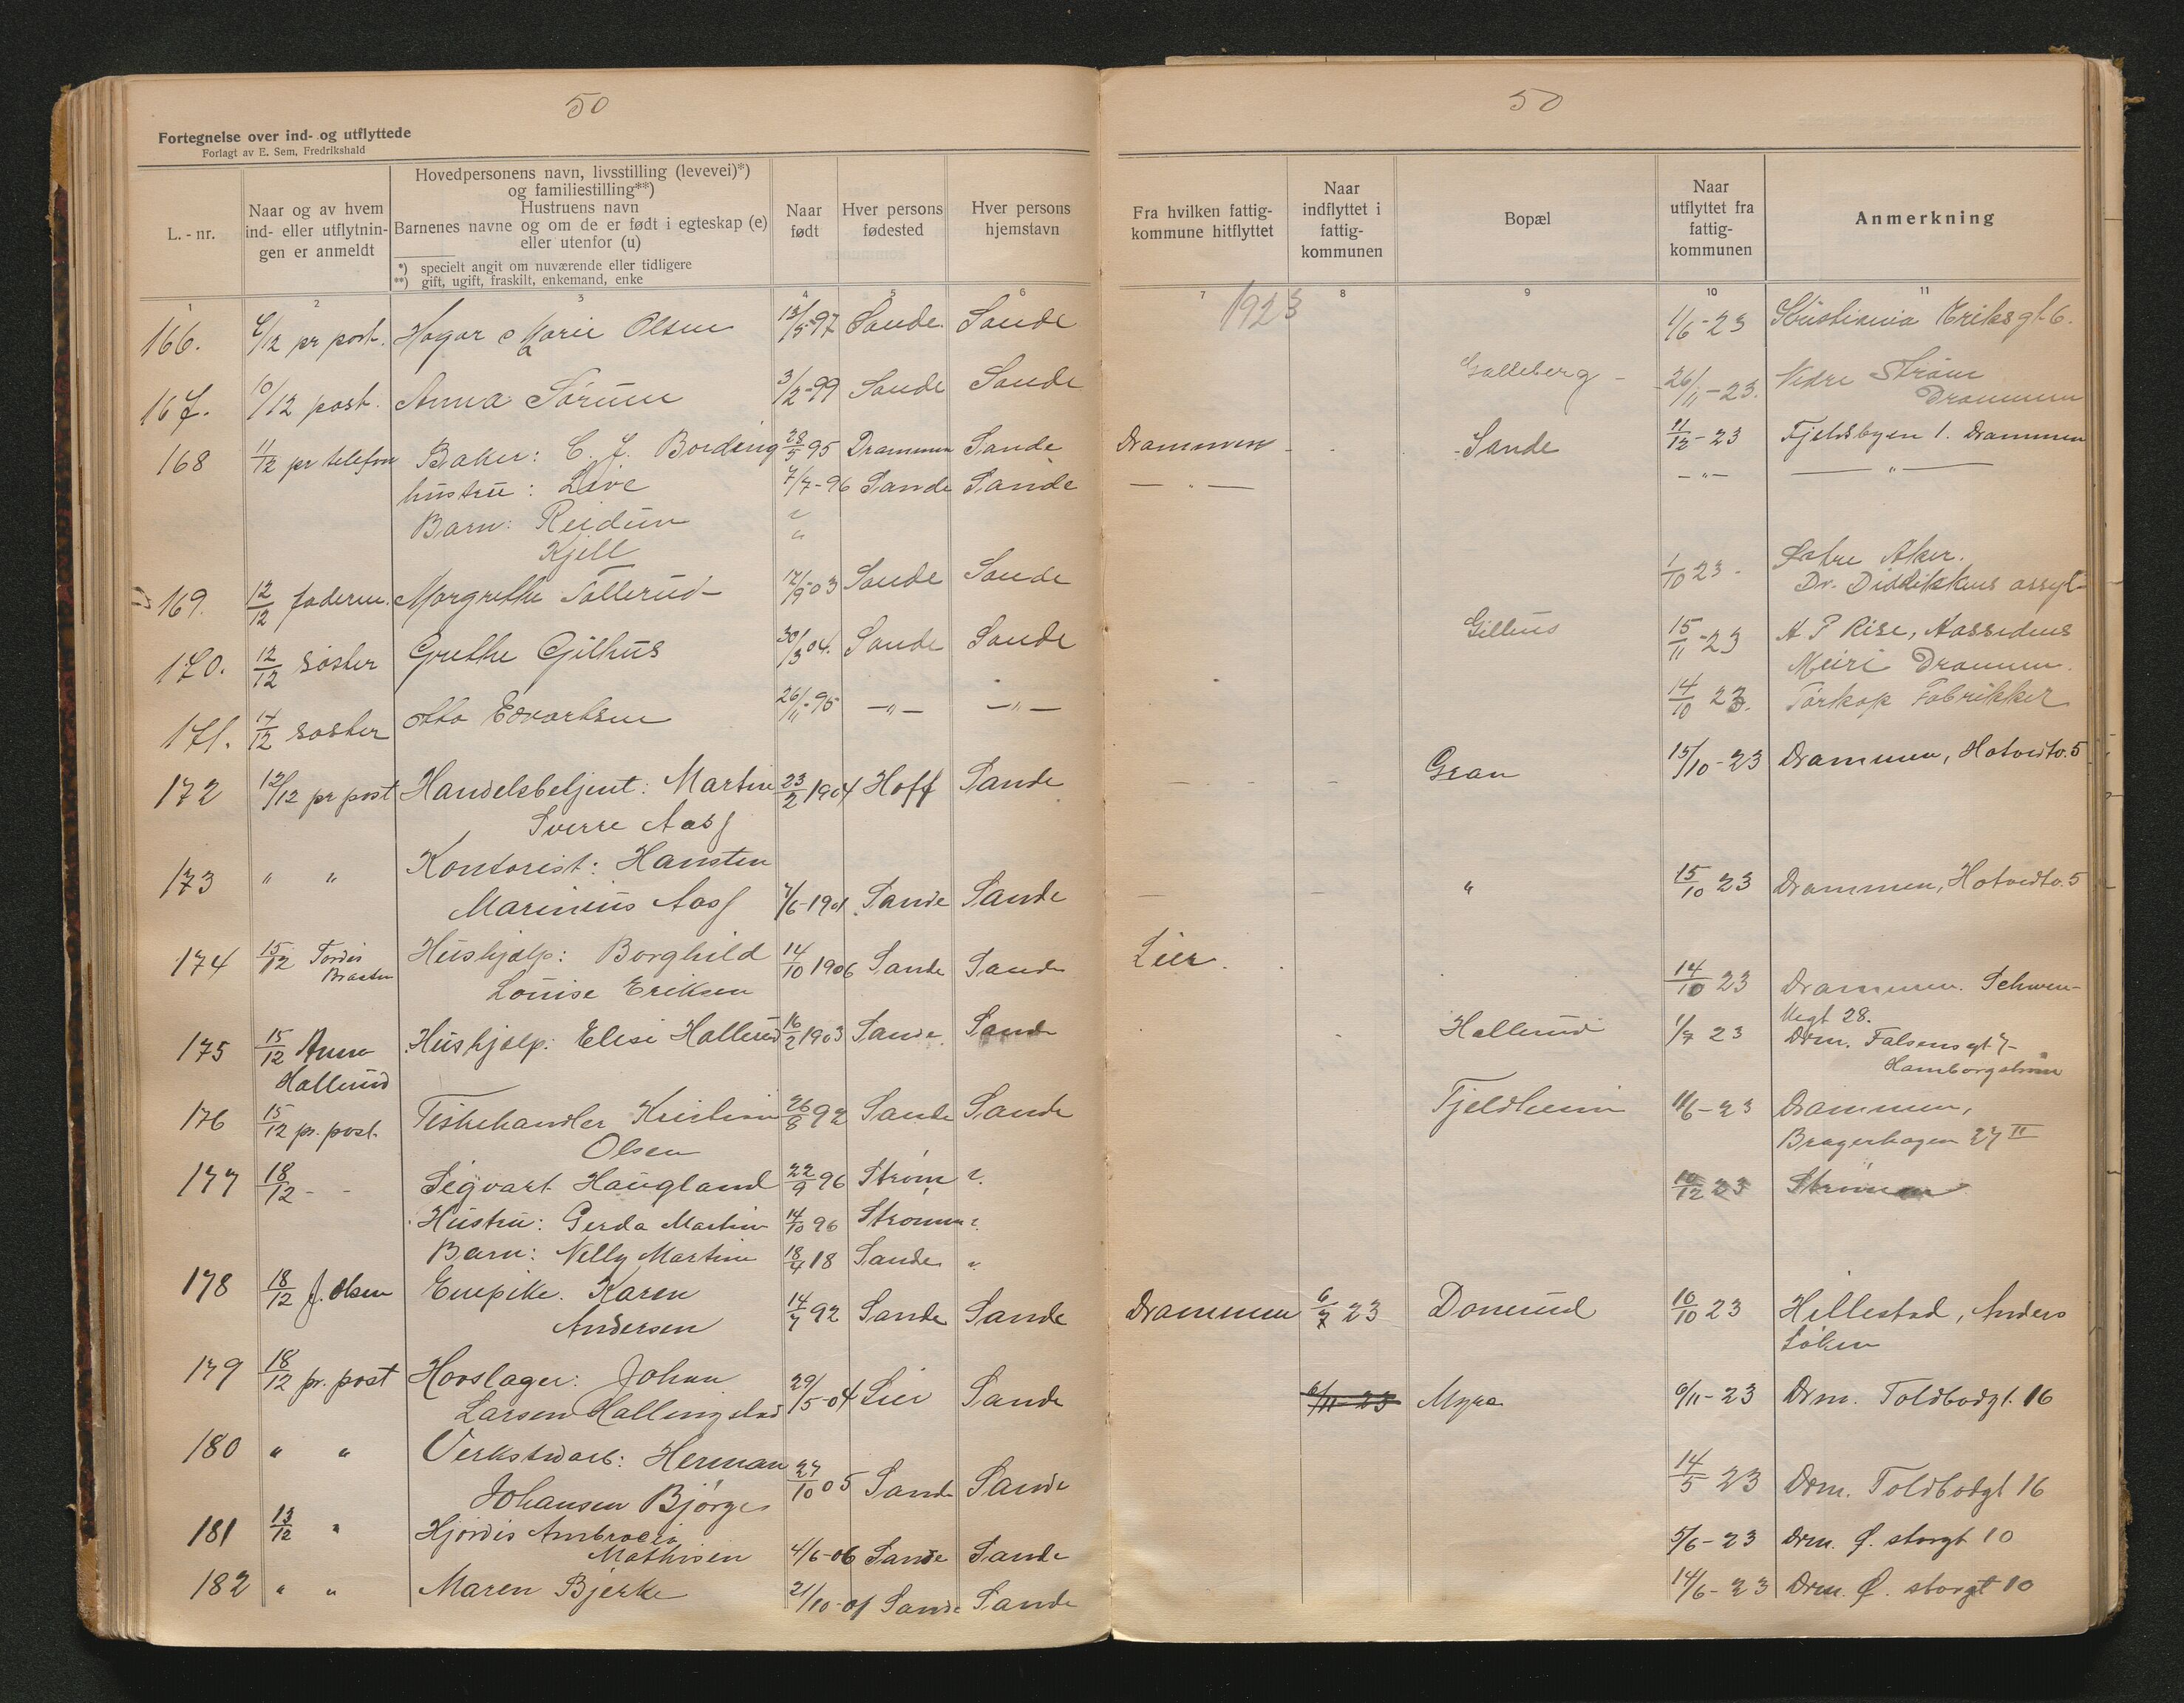 50
50
Fortegnelse over ind- og utflyttede
Forlagt av E. Sem, Fredrikshald
L.-nr.
Naar og av hvem ind- eller utflytnin-gen er anmeldt
Hovedpersonens navn, livsstilling (levevei)*)
og familiestilling**)
Hustruens navn
Barnenes navne og om de er født i egteskap (e)
eller utenfor (u)
*) specielt angit om nuværende eller tidligere
**) gift, ugift, fraskilt, enkemand, enke
Naar født
Hver persons fødested
Hver persons hjemstavn
Fra hvilken fattig-kommune hitflyttet
Naar indflyttet i fattig-kommunen
Bopæl
Naar utflyttet fra fattig-kommunen
Anmerkning
1 2 3 4 5 6 7 8 9 10 11
1923
166. 6/12 pr post. Hagar Marie Olsen 13/5-97 Sande Sande 1/6-23 Kristiania Eriksgt 6.
167. 10/12 post. Anna Sørum 3/2-99 Sande Sande Galleberg 26/11-23. Nedre Strøm
Drammen
168 11/12 pr telefon Baker: C. J. Bording 28/5 95 Drammen Sande Drammen Sande 11/12-23 Fjeldsbyen 1. Drammen
hustru: Live 7/7-96 Sande Sande — " — — " — — " —
Barn: Reidun "
Kjell "
169. 12/12 faderen. Margrethe Tollerud 17/9 03 Sande Sande 1/10 23 Østre Aker.
Dr. assyl
170. 12/12 søster Grethe Gilhus 30/3 04. Sande Sande Gilhus 15/11-23 A P Rise, Aassidens
Meiri Drammen.
171. 14/12 søster Otto Edvartsen 26/11-95 — " — — " — 14/10 23. Tørkop Fabrikker
172 12/12 pr post Handelsbetjent: Martin 23/2 1904 Hoff Sande Gran 15/10-23 Drammen, Hotvedtv. 5
Sverre Aas
173 " " Kontorist: Hansten
Marinius Aas 7/6-1901 Sande Sande " 15/10 23 Drammen, Hotvedtv. 5
174 15/12 Tordis Hushjælp: Borghild 14/10 1906 Sande Sande Lier 14/10 23 Drammen. Schwen-
Braaten Louise Eriksen Vegt 28.
175 15/12 Anna Hushjælp: Elise Hallerud 16/2 1903 Sande Sande Hallerud 1/7 23 Drm. Falsensgt 7
Hallerud Hamborgstrøm
176 15/12 pr. post. Fiskehandler Kristian 26/8 92 Sande Sande Fjeldheim 11/6-23 Drammen,
Olsen Bragerhagen 27 II
177 18/12 - - Sigvart Haugland 22/9 96 Strøm " 10/12 23 Strømm
Hustru: Gerda Martin 14/10 96 Strømm "
Barn: Nelly Martine 18/4 18 Sande "
178 18/12 J. Olsen Enepike. Karen
Andersen 14/7 92 Sande Sande Drammen 6/7 23 Donerud 10/10 23 Hillestad, Anders
Løken
179 18/12 pr. post Hovslager: Johan
Larsen Hallingstad 29/5-04 Lier Sande 6/11-23 Myra 6/11-23 Drm. Toldbodgt. 16
180 " " Verkstedarb: Herman
Johansen Bjørge 27/10 05 Sande Sande 14/5 23 Drm. Toldbodgt 16
181 13/12 " Hjørdis Ambrocia
Mathisen 4/6-06 Sande Sande 5/6-23 Drm. Ø. storgt 10
182 " " Maren Bjerke 21/10-01 Sande Sande 14/6-23 Drm. Ø. storgt 10